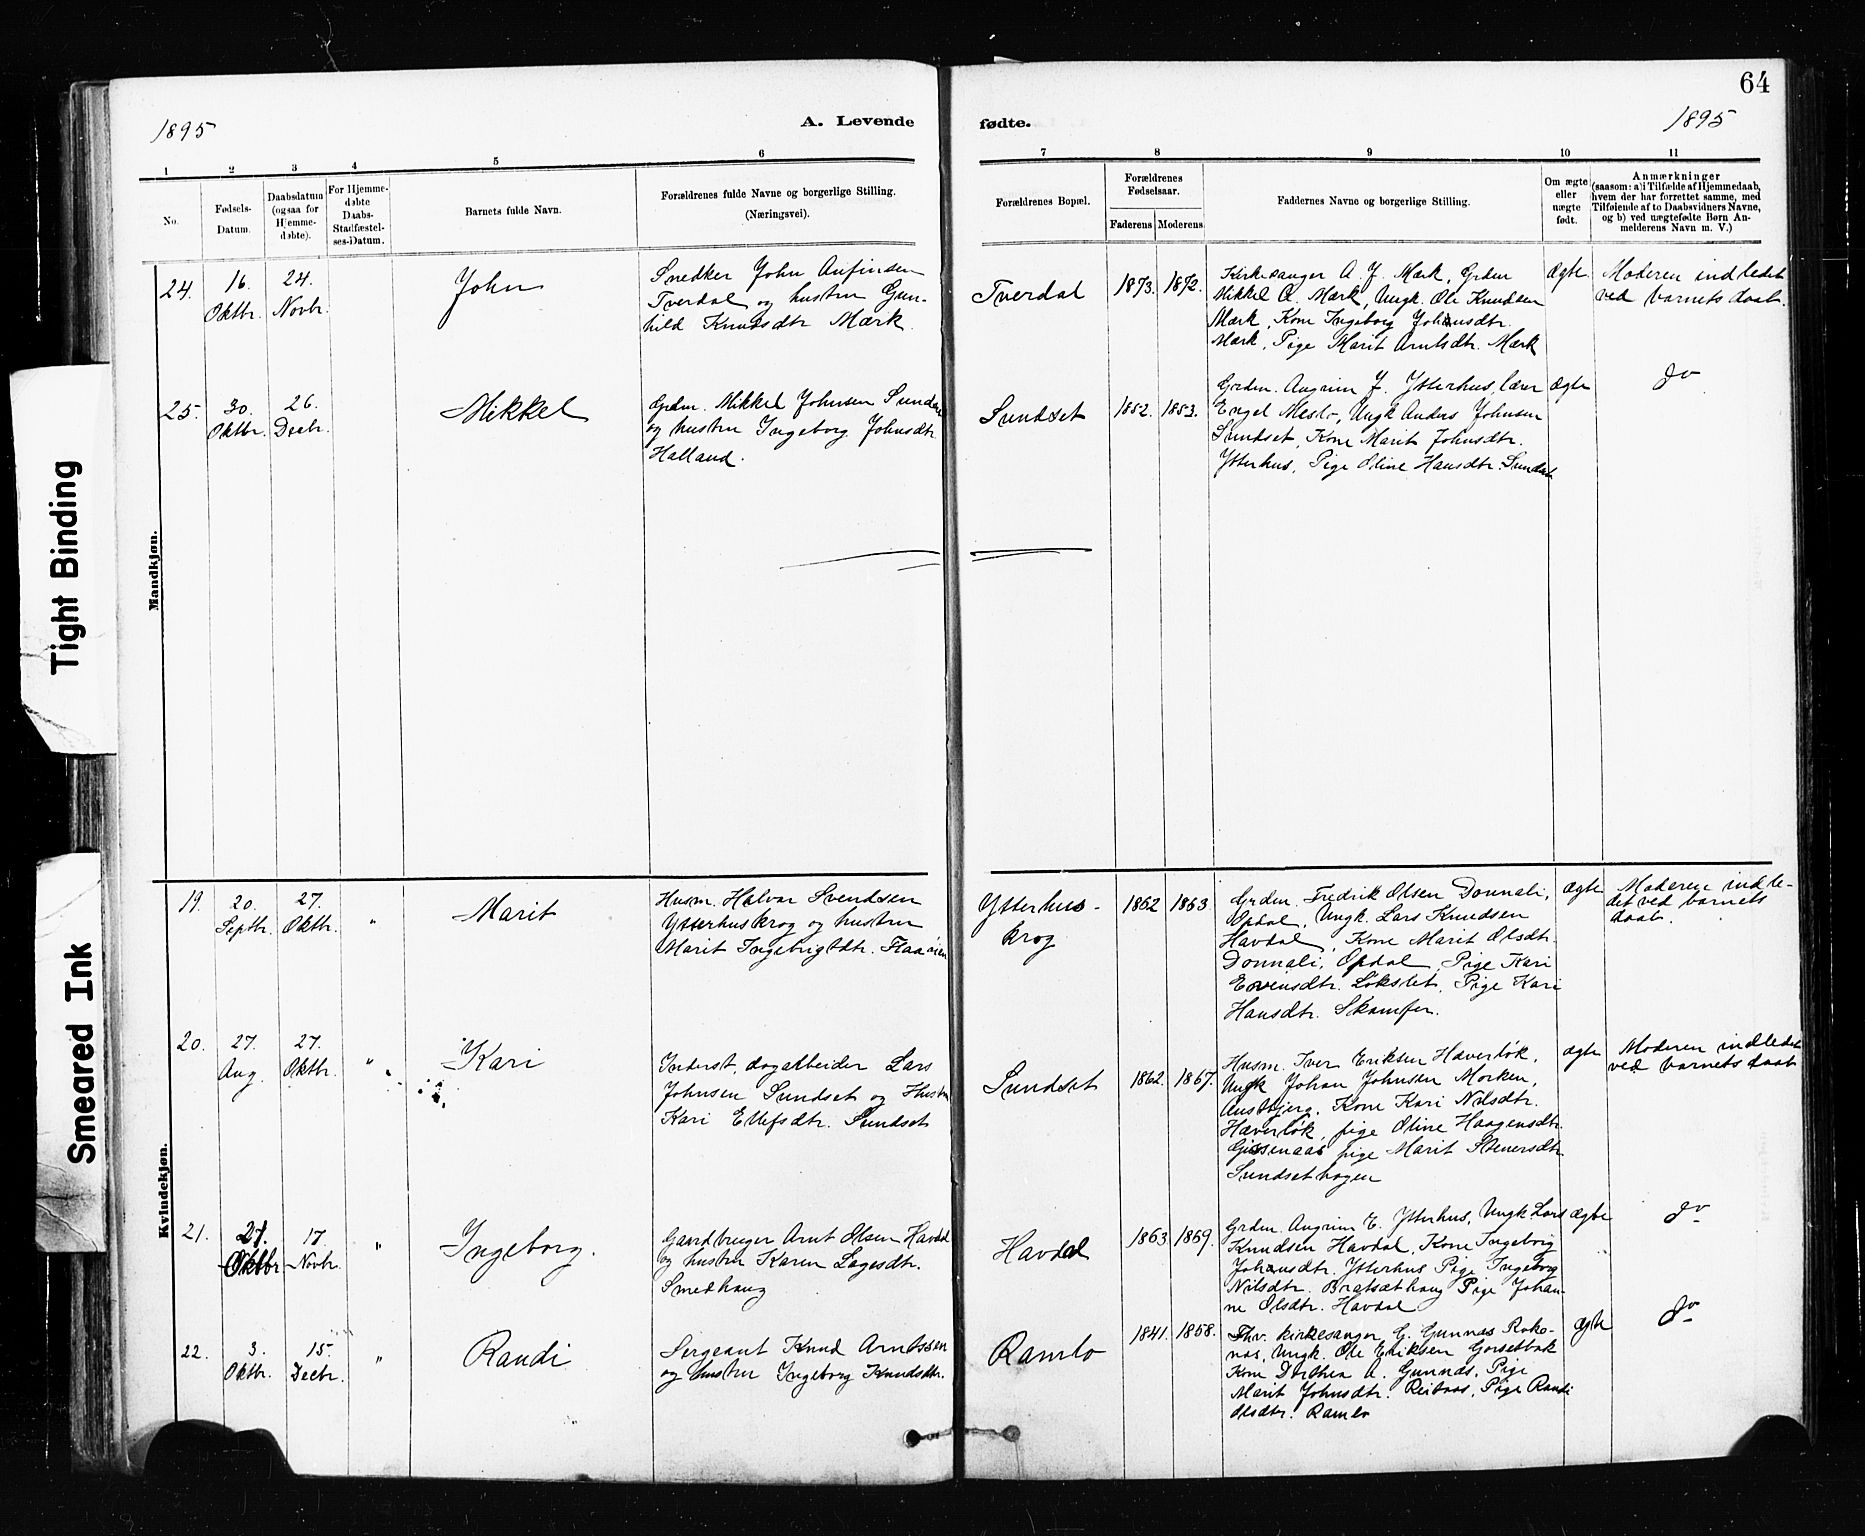 64
1895
A. Levende
fødte.
1895
1 2 3 4 5 6 7 8 9 10 11
No.
Fødsels-
Datum.
Daabsdatum
(ogsaa for
Hjemme-
døbte).
For Hjemme-
døbte
Daabs-
Stadfæstel-
ses-Datum.
Barnets fulde Navn.
Forældrenes fulde Navne og borgerlige Stilling.
(Næringsvei).
Forældrenes Bopæl.
Forældrenes
Fødselsaar.
Faderens Moderens
Faddernes Navne og borgerlige Stilling.
Om ægte
eller
uægte
født.
Anmærkninger
(saasom: a) i Tilfælde af Hjemmedaab,
hvem der har forrettet samme, med
Tilføiende af to Daabsvidners Navne,
og b) ved uægtefødte Børn An-
melderens Navn m. V.)
Mandkjøn.
24.
16.
Oktbr.
24.
Novbr.
John
Snedker John Anfinsen
Tverdal og hustru Gun-
hild Knudsdtr Mærk.
Tverdal
1873. 1872.
Kirkesanger A. J. Mærk, Grdm
Mikkel A. Mærk, Ungk. Ole Knudsen
Mærk, Kone Ingeborg Johnsdtr.
Mærk, Pige Marit Arntsdtr. Mærk
ægte
Moderen indledet
ved barnets daab.
25.
30.
Oktbr.
26.
Decbr.
Mikkel
Grdm. Mikkel Johnsen Sundset
og hustru Ingeborg Johnsdtr
Halland.
Sundset
1852. 1853.
Grdm. Angrim J. Ytterhus, lærer
Engel Meslo, Ungk Anders Johnsen
Sundset, Kone Marit Johnsdtr.
Ytterhus, Pige Oline Hansdtr. Sundset
ægte
Do
Kvindekjøn.
19.
20.
Septbr.
27.
Oktbr.
"
Marit
Husm. Halvor Svendsen
Ytterhuskrog og hustru
Marit Ingebrigtdtr.
Ytterhus-
krog
1862 1863
Grdm. Fredrik Olsen Donnali,
Opdal, Ungk. Lars Knudsen
Havdal, Kone Marit Olsdtr.
Donnali, Opdal, Pige Kari
Løkslet, Pige Kari
Hansdtr. Skamfer.
ægte
Moderen indle-
det ved barnets
daab.
20.
27.
Aug.
27.
Oktbr.
"
Kari
Inderst, dagarbeider Lars
Johnsen Sundset og Hustru
Kari Ellefsdtr. Sundset
Sundset
1862. 1867.
Husm. Iver Eriksen Hæverløk,
Ungk Johan Johnsen Morken,
Austbjerg, Kone Kari Nilsdtr.
Hæverløk, pige Oline Haagensdtr.
Gissenaas pige Marit Stenersdtr
Sundsethagen
ægte
Moderen indledet
ved barnets daab
21.
27.
Oktbr
17.
Novbr.
"
Ingeborg.
Gaardbruger Arnt Olsen Havdal
og hustru Karen Lagesdtr.
Smedhaug
Havdal
1863 1869.
Grdm. Angrim E. Ytterhus, Ungk. Lars
Knudsen Havdal, Kone Ingeborg
Johnsdtr. Ytterhus Pige Ingeborg
Nilsdtr. Bratsethaug Pige Johan-
ne Olsdtr. Havdal
ægte
Do
22.
3.
Oktbr.
15.
Decbr.
"
Randi
Sergeant Knud Arntssen
og hustru Ingeborg Knudsdtr.
Ramlo
1841. 1858.
Fhv. kirkesanger G. Gunnas
Ungk. Ole Eriksen Gorsetbak
Kone Dorthea A. Gunnas, Pige
Marit Johnsdtr. Reitaas, Pige Randi
Olsdtr. Ramlo
ægte
Do
Tight Binding
Smeared Ink